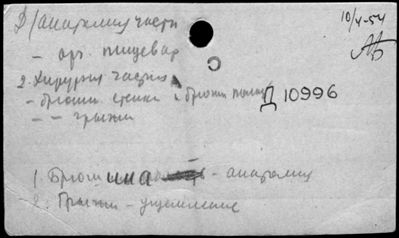 Д/анатомия части
10/4-54
- орг. пищевар
2. Хирургия частная
- брюшн стенки и брюшн полос
Д 10996
- - грыжи
1. Брюшина - анатомия
2. Грыжи - ущемление